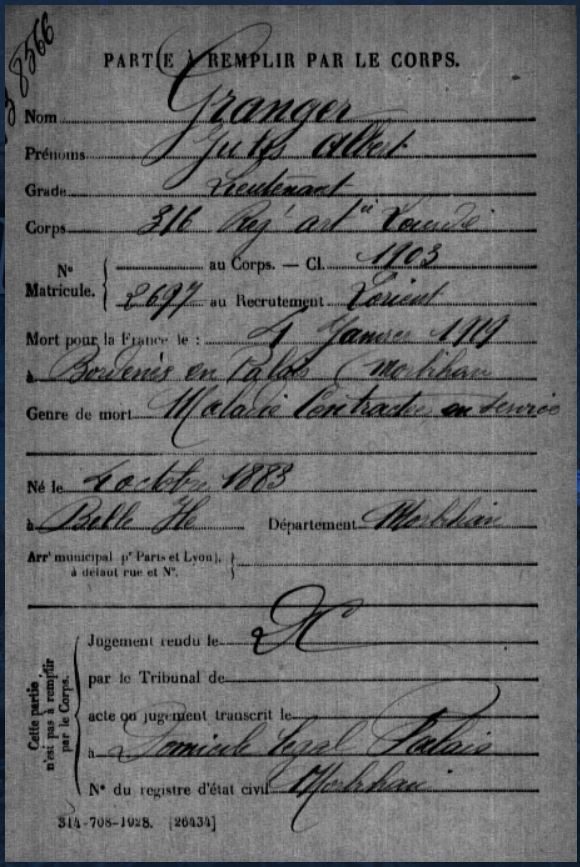 8566
PARTIE À REMPLIR PAR LE CORPS.
Nom Granger
Prénoms Jules Albert
Grade Lieutenant
Corps 316 Reg' artie Lourde
N° Matricule. { au Corps. — Cl. 1903
2697 au Recrutement Lorient
Mort pour la France le : 4 Janvier 1919
à Bordenis en Palais (Morbihan
Genre de mort Maladie Contractée en service
Né le 4 octobre 1883
à Belle Ile Département Morbihan
Arr' municipal (p' Paris et Lyon),
à défaut rue et N°. }
Cette partie n'est pas à remplir par le Corps.
Jugement rendu le
par le Tribunal de
acte ou jugement transcrit le
à Domicile légal Palais
N° du registre d'état civil Morbihan
314-708-1928. [26434]